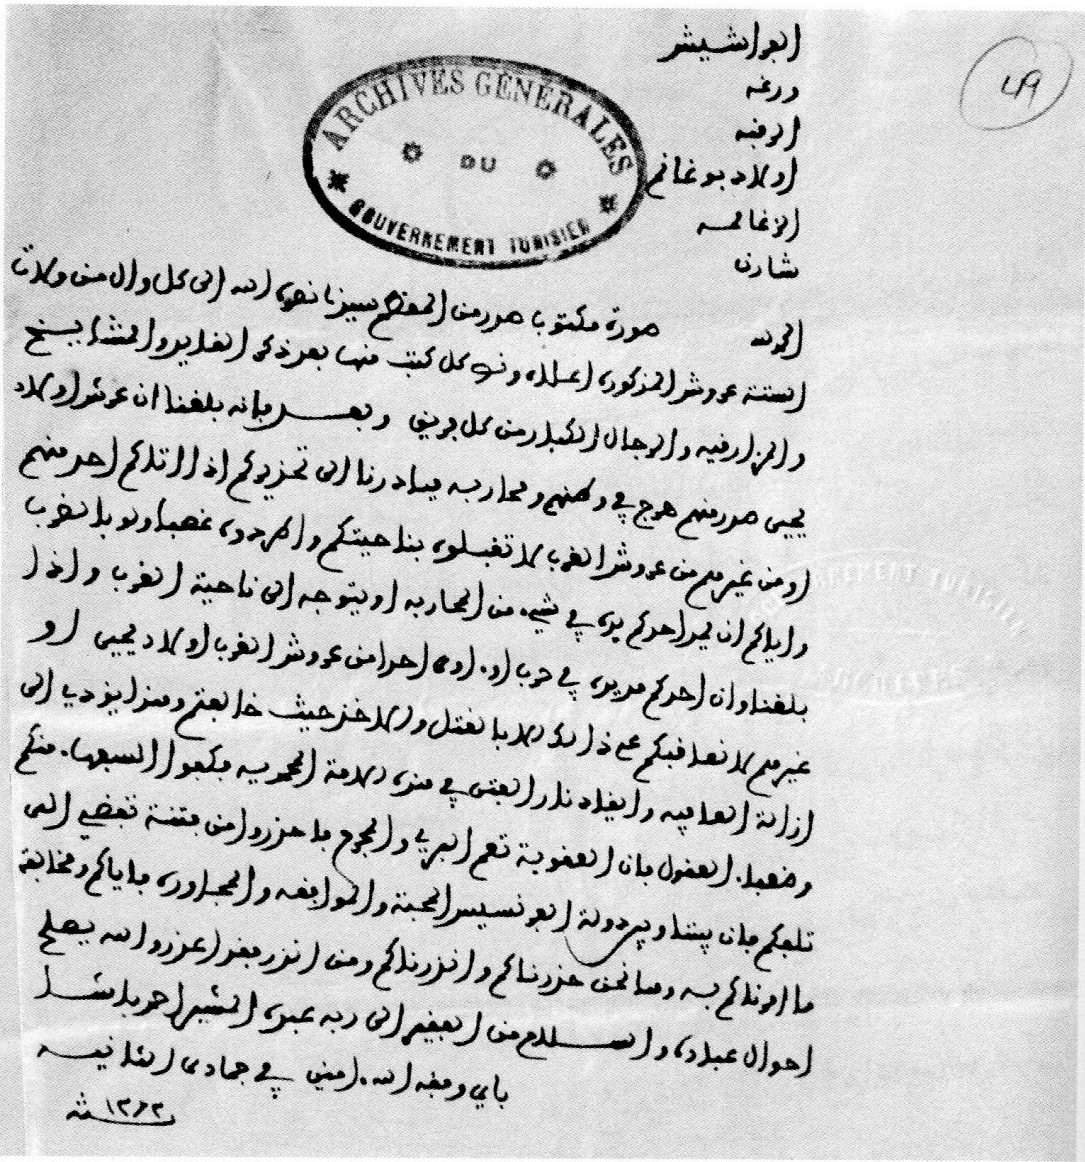 49
الفراشيش
ورغه
الرقبه
اولاد بوغانم
الزغالمه
شارن
ARCHIVES GENERALES
DU
GOUVERNEMENT TUNISIEN
الحمد لله صورة مكتوب صدر من المعظم سيدنا نصره الله الى كل وال من ولات
الستة عروش المذكوره اعلاه ونص كل كتب منها بعد ذكر القايد والمشايخ
والمزارقيه والرجال الكبار من كل فريق وبعد فانه بلغنا ان عرش اولاد
يحيى صدر منهم هرج في وطنهم ومحاربه فبادرنا الى تحذيركم اذا اتاكم احد منهم
او من غيرهم من عروش الغرب لا تقبلوه بناحيتكم واطردوه غصبا ولو بالضرب
واياكم ان يمد احدكم يده في شيء من المحاربه او يتوجه الى ناحية الغرب واذا
بلغنا وان احدكم مد يده في حرب او اوى احدا من عروش الغرب اولاد يحيى او
غيرهم لا نعاقبكم على ذلك الا بالقتل والاخذ حيث خالفتم وهذا يؤديا الى
ازالة العافيه وايقاد نار الفتن في هذه الامة المحمديه فكفوا السفهاء منكم
وضعفاء العقول فان العقوبة تعم البري والمجرم فاحذروا من فتنة تفضي الى
تلفكم فان بيننا وبين دولة الفرنسيس المحبة والموافقه والمجاوره فاياكم ومخالفة
ما امرناكم به وها نحن حذرناكم وانذرناكم ومن انذر فقد اعذر والله يصلح
احوال عباده والسلام من الفقير الى ربه عبده المشير احمد باشا
باي وفقه الله امين في جمادى الثانيه
سنة ١٢٦٢